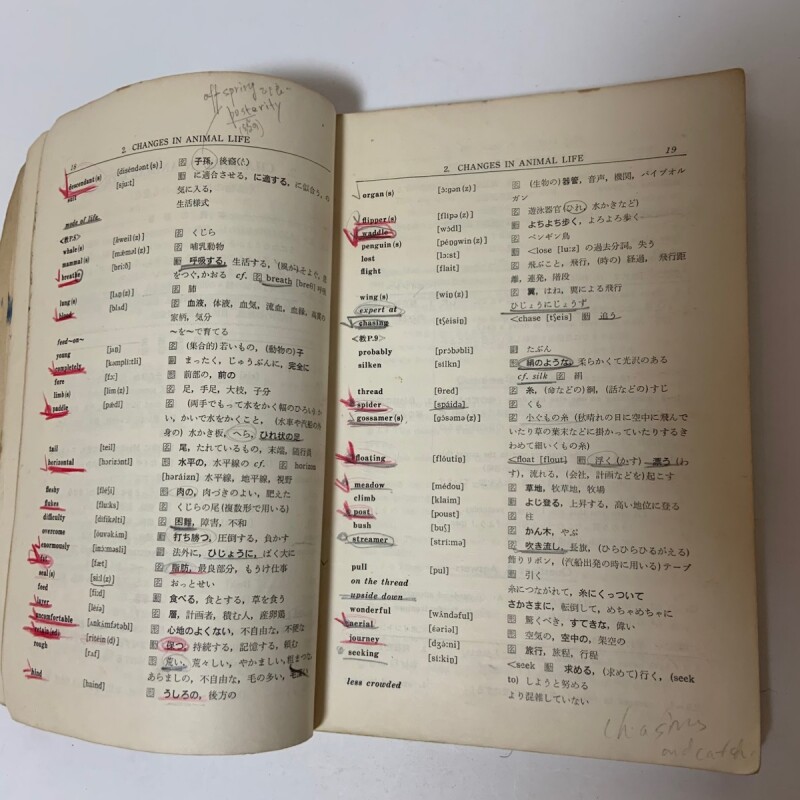 offspring
posterity
18
2. CHANGES IN ANIMAL LIFE
descendant(s) [diséndənt(s)] 図 子孫, 後裔
suit [sju:t] 動 に適合させる, に適する, に似合う,
気に入る,
mode of life 生活様式
<教P.8>
whale(s) 図 くじら
mammal(s) 図 哺乳動物
breathe [bri:ð] 動 呼吸する, 生活する,
をつぐ, かおる cf. 図 breath [breθ] 呼吸
lung(s) [lʌŋ(z)] 図 肺
blood [blʌd] 図 血液, 体液, 血気, 流血, 血縁,
家柄, 気分
feed~on~ ~を~で育てる
young [jʌŋ] 図 (集合的) 若いもの, (動物の) 子
completely [kəmplí:tli] 副 まったく, じゅうぶんに, 完全に
fore [fɔ:] 図 前部の, 前の
limb(s) [lim(z)] 図 足, 手足, 大枝, 子分
paddle [pædl] 図 (両手でもって水をかく幅のひろい)
い, かいで水をかくこと, (水車や汽船の
身の) 水かき板, へら, ひれ状の足
tail [teil] 図 尾, たれているもの, 末端, 随行員
horizontal [hɔrizɔ́ntl] 図 水平の, 水平線の cf. 図 horizon
[həráizn] 水平線, 地平線, 視野
fleshy [fléʃi] 図 肉の, 肉づきのよい, 肥えた
flukes [flu:ks] 図 くじらの尾 (複数形で用いる)
difficulty [dífikəlti] 図 困難, 障害, 不和
overcome [òuvəkʌ́m] 動 打ち勝つ, 圧倒する, 負かす
enormously [inɔ́:məsli] 副 法外に, ひじょうに, ばく大に
fat [fæt] 図 脂肪, 最良部分, もうけ仕事
seal(s) [si:l(z)] 図 おっとせい
feed [fi:d] 動 食べる, 食とする, 草を食う
layer [léiə] 図 層, 計画者, 積む人, 産卵鶏
uncomfortable [ʌnkʌ́mfətəbl] 図 心地のよくない, 不自由な, 不便な
retain(ed) [ritéin(d)] 動 保つ, 持続する, 記憶する, 頼む
rough [rʌf] 図 荒い, 荒々しい, やかましい,
あらましの, 不自由な, 毛の多い,
hind [haind] 図 うしろの, 後方の
2. CHANGES IN ANIMAL LIFE
19
organ(s) [ɔ́:gən(z)] 図 (生物の) 器管, 音声, 機関, パイプオル
ガン
flipper(s) [flípə(z)] 図 遊泳器官 (ひれ, 水かきなど)
waddle [wɔdl] 動 よちよち歩く, よろよろ歩く
penguin(s) [péŋgwin(z)] 図 ペンギン鳥
lost [lɔ:st] <lose [lu:z] の過去分詞. 失う
flight [flait] 図 飛ぶこと, 飛行, (時の) 経過, 飛行距
離, 連発, 階段
wing(s) [wiŋ(z)] 図 翼, はね, 翼による飛行
expert at ひじょうにじょうず
chasing [tʃéisiŋ] <chase [tʃeis] 動 追う
<教P.9>
probably [prɔ́bəbli] 副 たぶん
silken [silkn] 図 絹のような, 柔らかくて光沢のある
cf. silk 図 絹
thread [θred] 図 糸, (命などの) 綱, (話などの) すじ
spider [spáidə] 図 くも
gossamer(s) [gɔ́səmə(z)] 図 小ぐもの糸 (秋晴れの日に空中に飛んで
いたり草の葉末などに掛かっていたりするき
わめて細いくもの糸)
floating [flóutiŋ] <float [flout] 動 浮く(かす) 漂う (わ
す), 流れる, (会社, 計画などを) 起こす
meadow [médou] 図 草地, 牧草地, 牧場
climb [klaim] 動 よじ登る, 上昇する, 高い地位に登る
post [poust] 図 柱
bush [buʃ] 図 かん木, やぶ
streamer [strí:mə] 図 吹き流し, 長旗, (ひらひらひるがえる)
飾りリボン, (汽船出発の時に用いる) テープ
pull [pul] 動 引く
on the thread 糸につながれて, 糸にくっついて
upside down さかさまに, 転倒して, めちゃめちゃに
wonderful [wʌ́ndəful] 図 驚くべき, すてきな, 偉い
aerial [ɛ́əriəl] 図 空気の, 空中の, 架空の
journey [dʒə́:ni] 図 旅行, 旅程, 行程
seeking [sí:kiŋ] <seek 動 求める, (求めて) 行く, (seek
to) しようと努める
less crowded より混雑していない
chasing
and catch